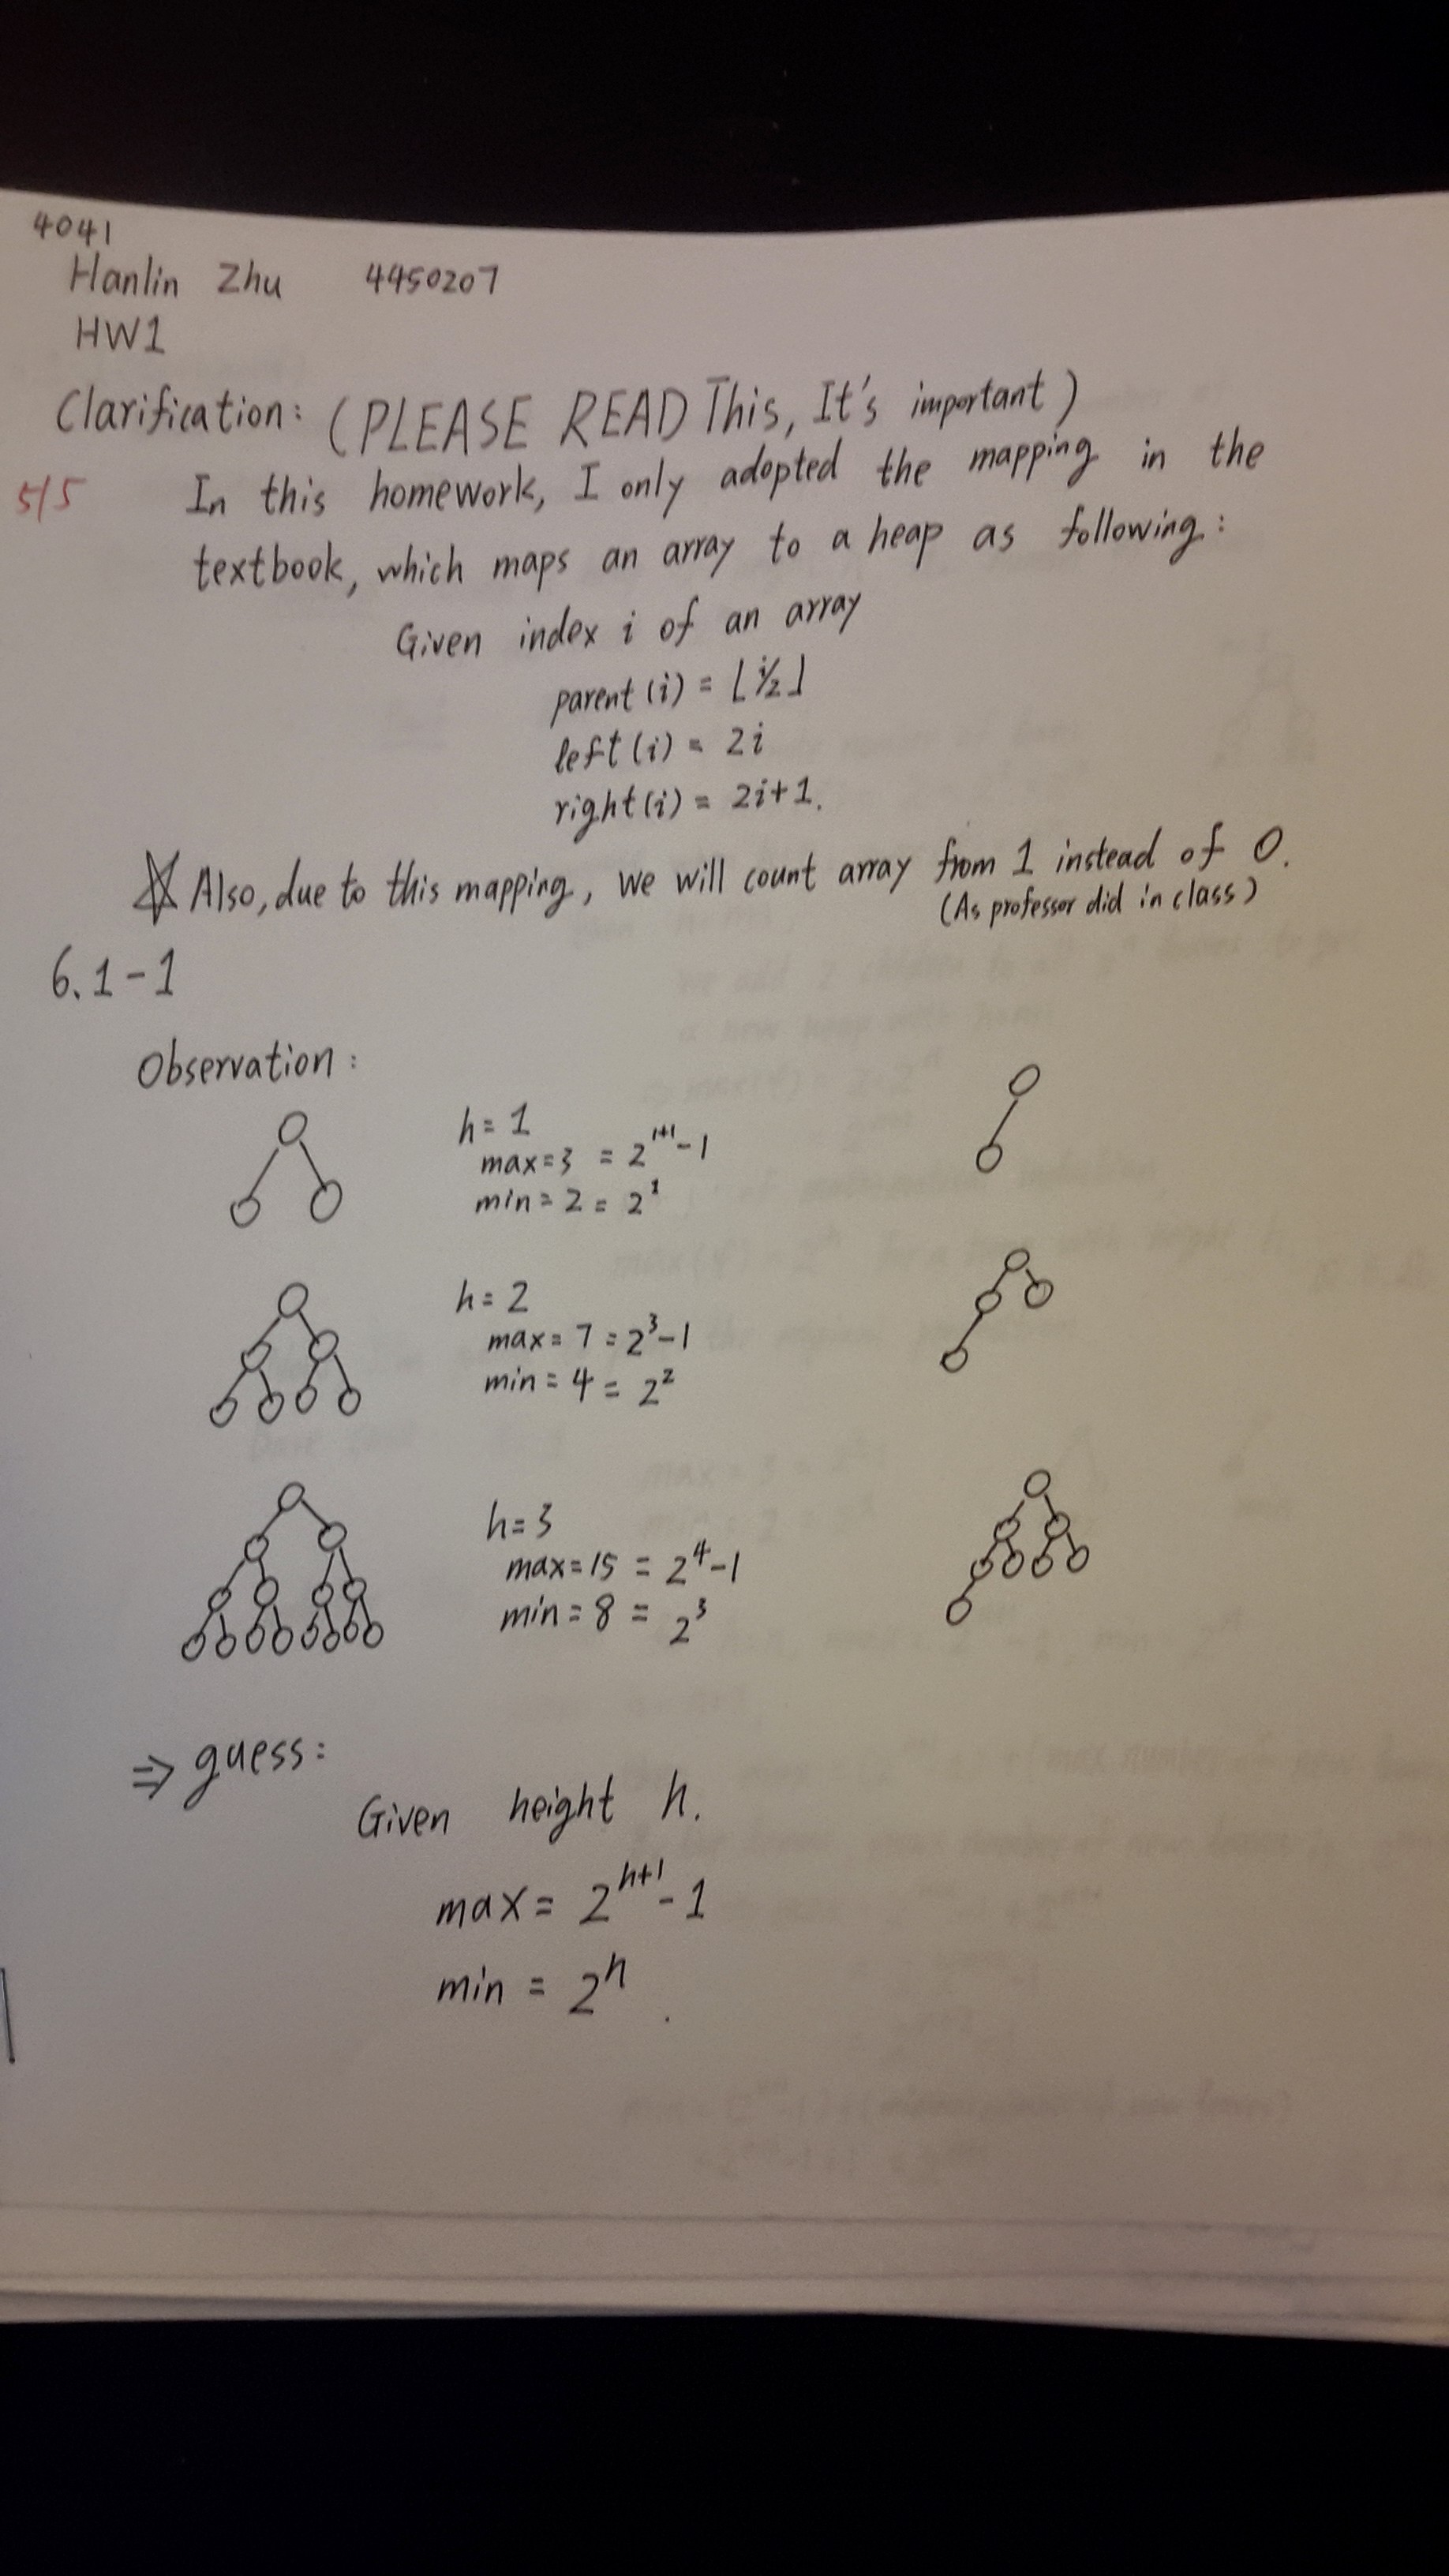 4041
Hanlin Zhu 4450207
HW1
Clarification: (PLEASE READ This, It's important)
5/5 In this homework, I only adopted the mapping in the
textbook, which maps an array to a heap as following:
Given index i of an array
parent (i) = ⌊i/2⌋
left (i) = 2i
right (i) = 2i+1.
☆ Also, due to this mapping, we will count array from 1 instead of 0.
(As professor did in class)
6.1-1
Observation:
h = 1
max = 3 = 2^{1+1} - 1
min = 2 = 2^1
h = 2
max = 7 = 2^3 - 1
min = 4 = 2^2
h = 3
max = 15 = 2^4 - 1
min = 8 = 2^3
⇒ guess:
Given height h.
max = 2^{h+1} - 1
min = 2^h.